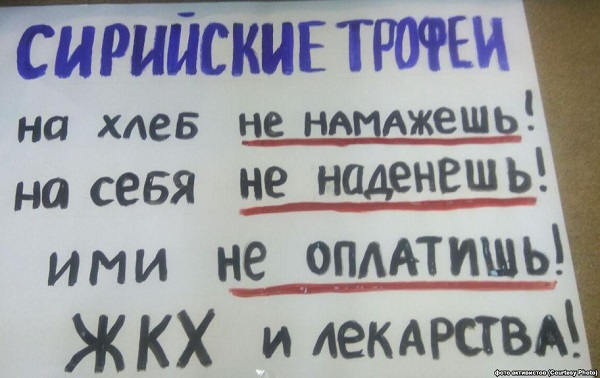 СИРИЙСКИЕ ТРОФЕИ
на хлеб не намажешь!
на себя не наденешь!
ими не оплатишь!
ЖКХ и лекарства!
фото активистов (Courtesy Photo)